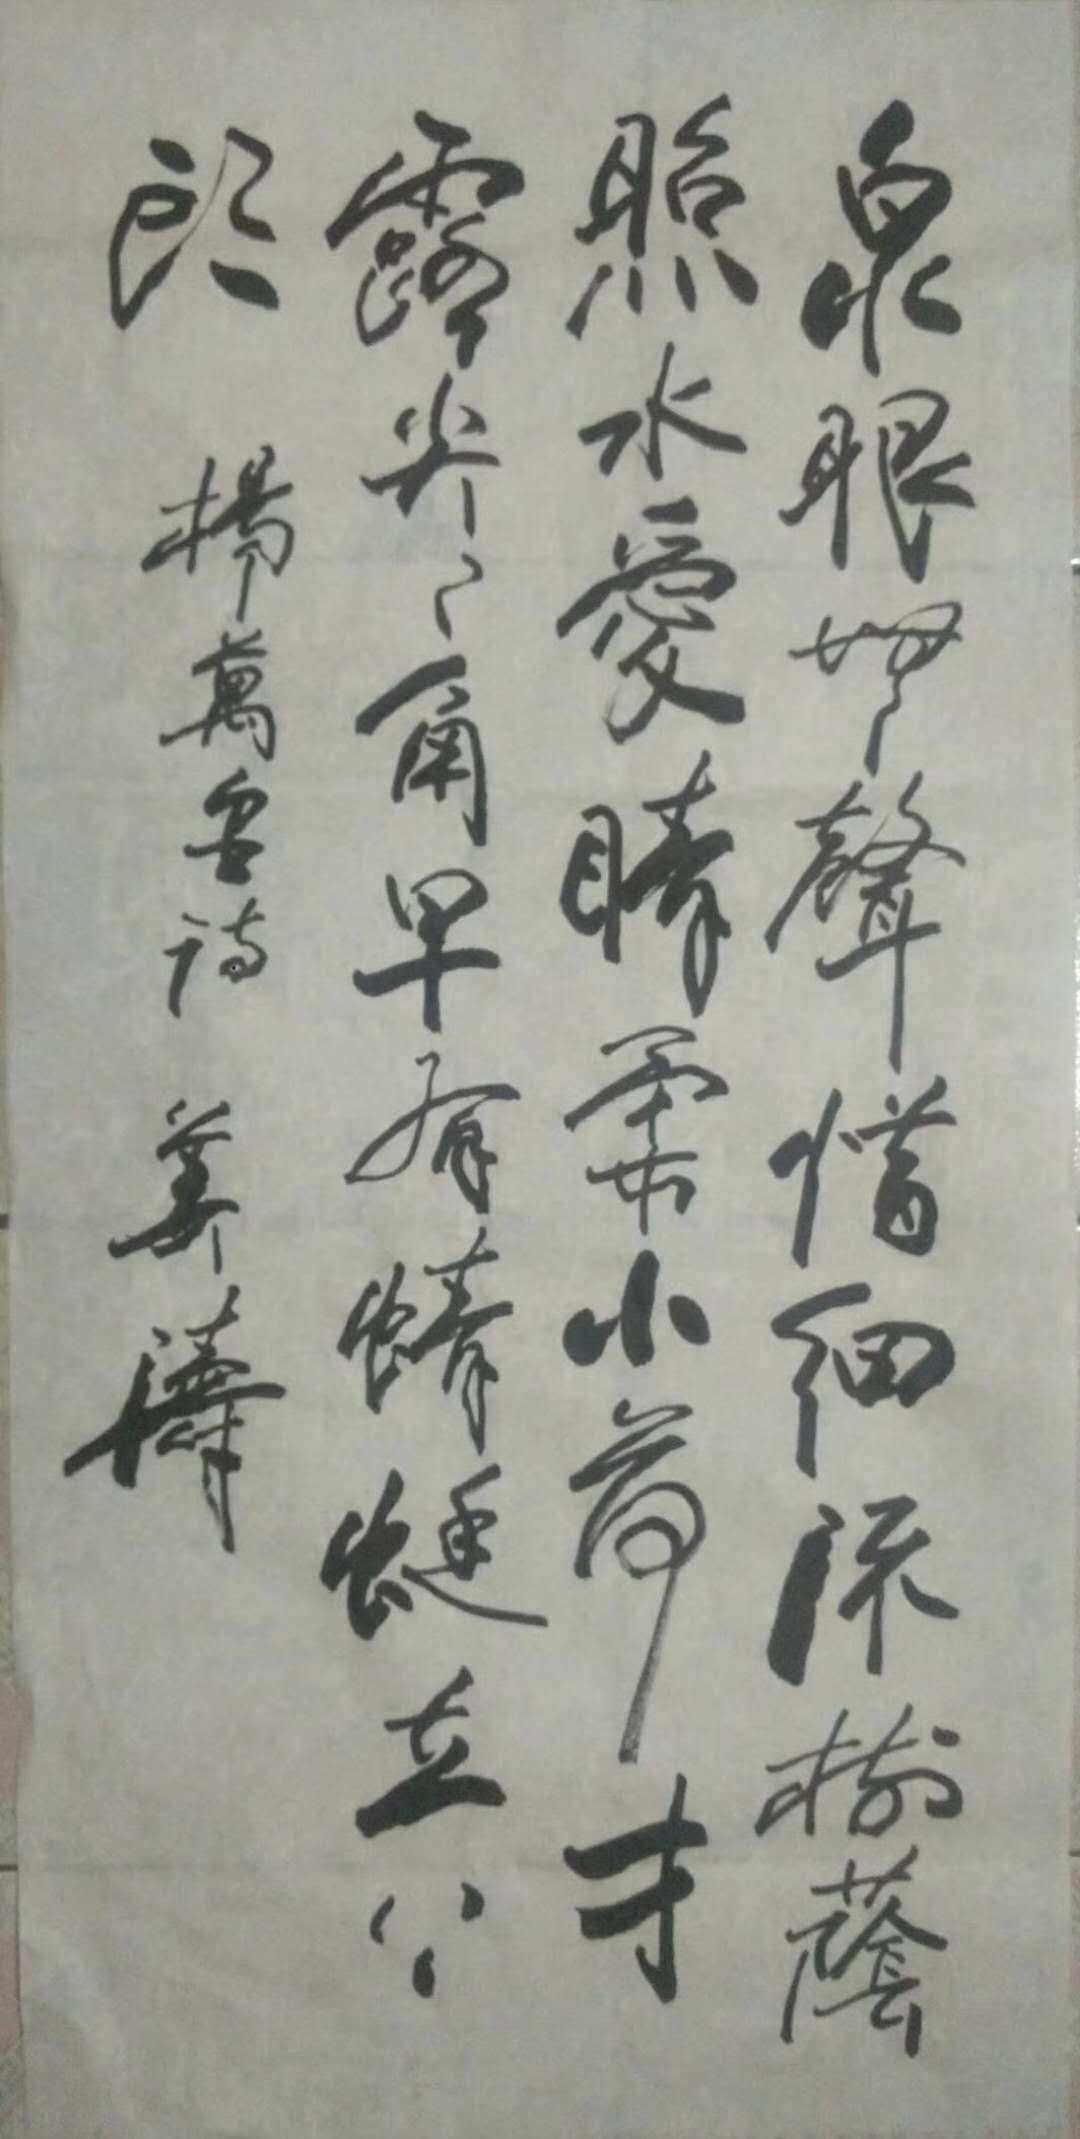 泉眼無聲惜細流樹蔭
照水愛晴柔小荷才
露尖々角早有蜻蜓立上
頭 楊萬里詩 姜濤